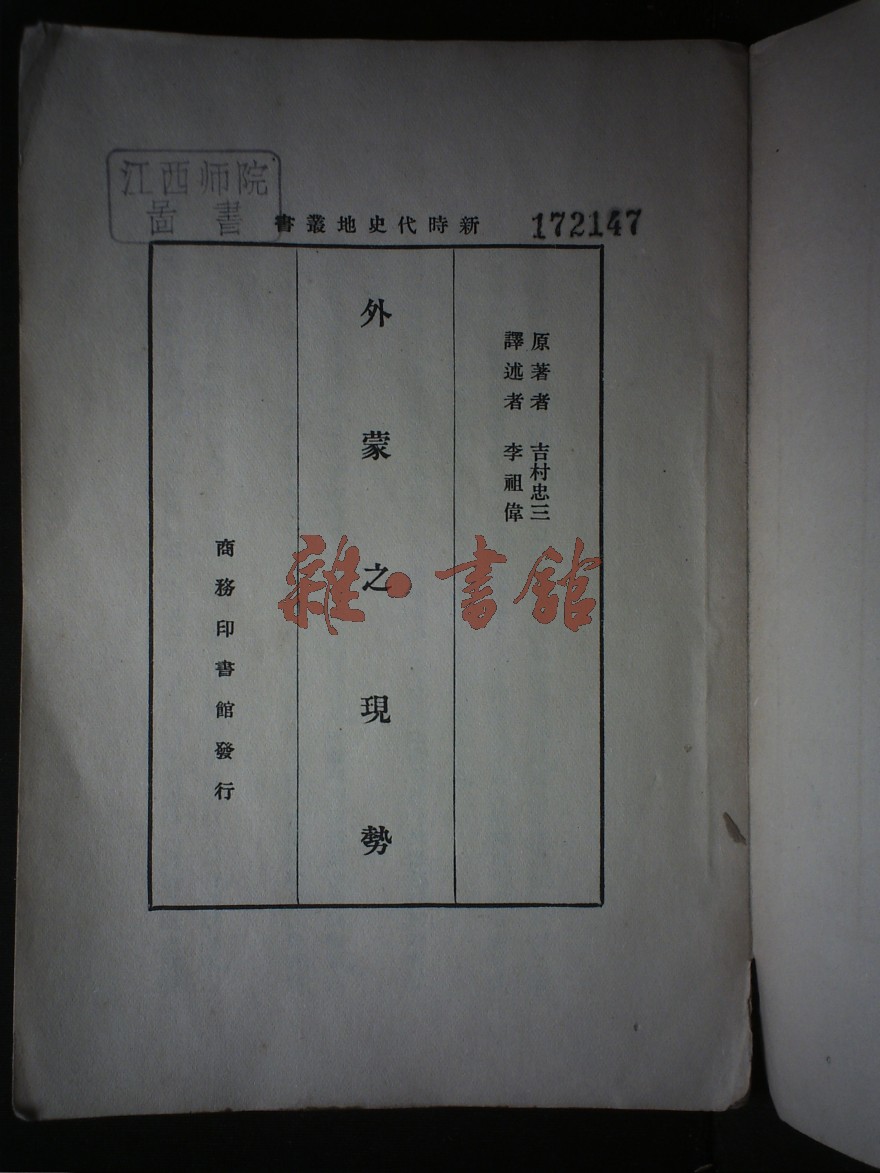 江西师院
圖書
172147
新時代史地叢書
原著者 吉村忠三
譯述者 李祖偉
外蒙之現勢
商務印書館發行
雜·書館